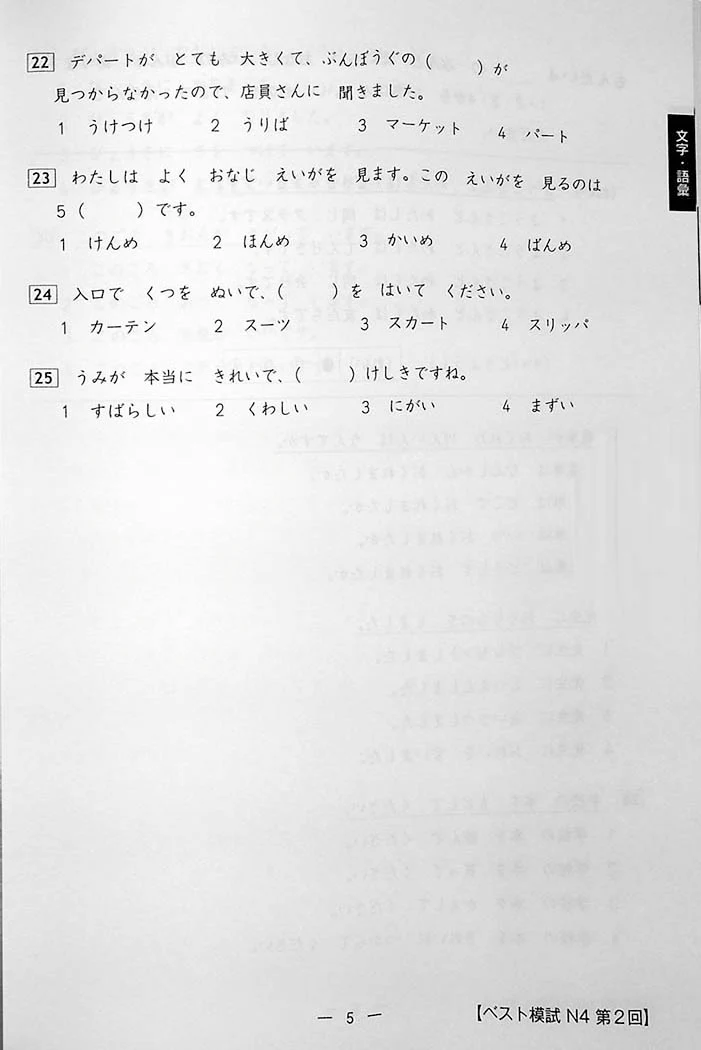 22 デパートが とても 大きくて、ぶんぼうぐの（　　）が
見つからなかったので、店員さんに 聞きました。
1 うけつけ 2 うりば 3 マーケット 4 パート
文字・語彙
23 わたしは よく おなじ えいがを 見ます。この えいがを 見るのは
5（　　）です。
1 けんめ 2 ほんめ 3 かいめ 4 ばんめ
24 入口で くつを ぬいで、（　　）を はいて ください。
1 カーテン 2 スーツ 3 スカート 4 スリッパ
25 うみが 本当に きれいで、（　　）けしきですね。
1 すばらしい 2 くわしい 3 にがい 4 まずい
— 5 —
【ベスト模試 N4 第2回】